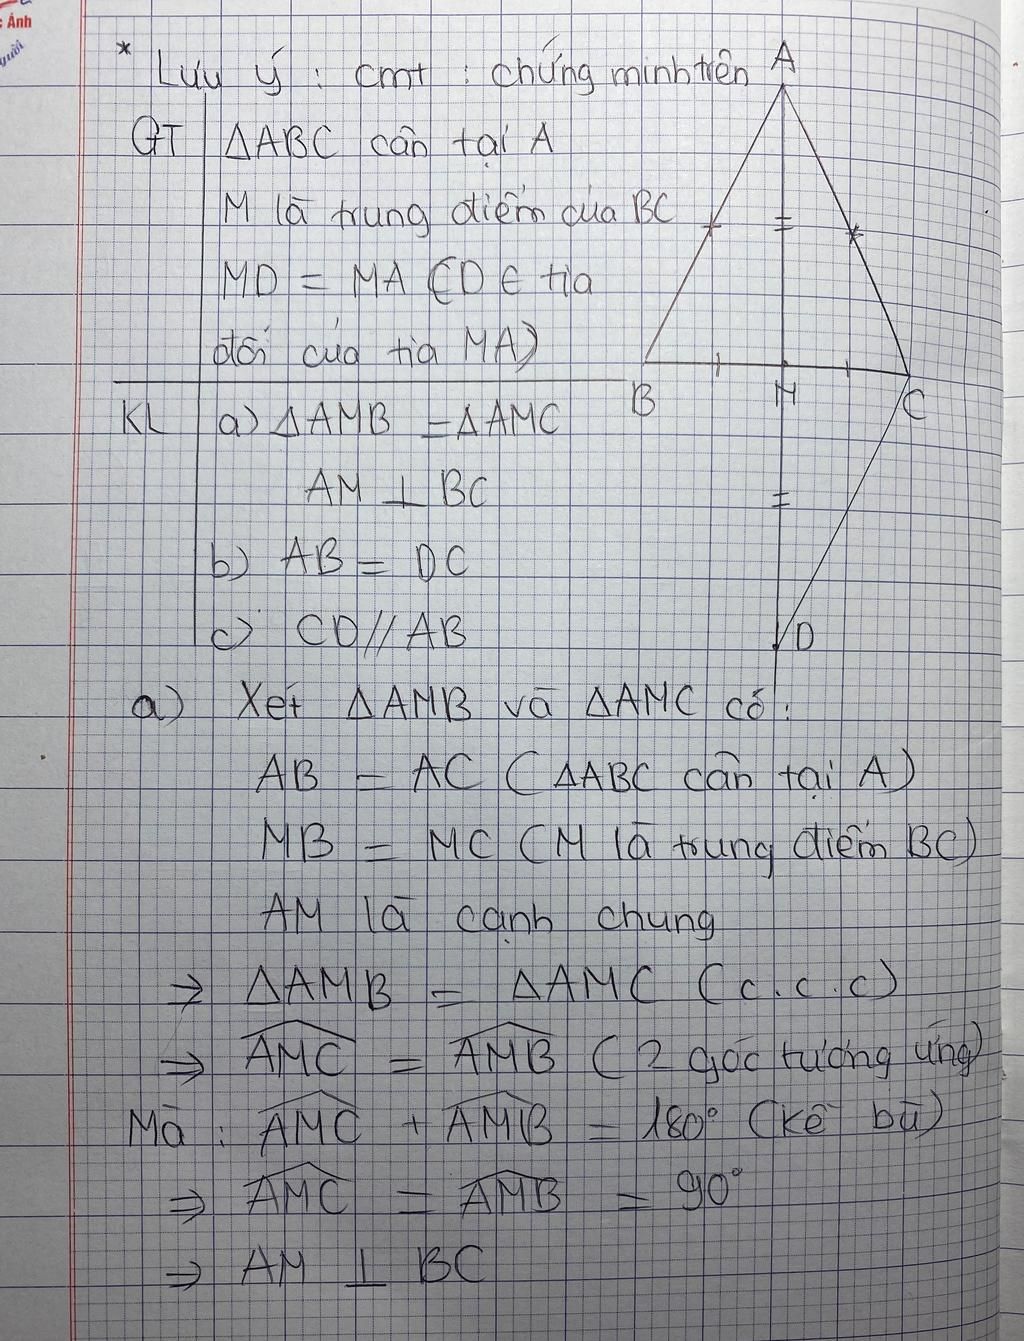 : Ánh
* Lưu ý : cmt : chứng minh trên
A
GT ΔABC cân tại A
M là trung điểm của BC
MD = MA (D ∈ tia
đối của tia MA)
B M C
KL a) ΔAMB = ΔAMC
AM ⊥ BC
b) AB = DC
c) CD // AB
D
a) Xét ΔAMB và ΔAMC có :
AB = AC (ΔABC cân tại A)
MB = MC (M là trung điểm BC)
AM là cạnh chung
⇒ ΔAMB = ΔAMC (c.c.c)
⇒ \widehat{AMC} = \widehat{AMB} (2 góc tương ứng)
Mà : \widehat{AMC} + \widehat{AMB} = 180° (kề bù)
⇒ \widehat{AMC} = \widehat{AMB} = 90°
⇒ AM ⊥ BC